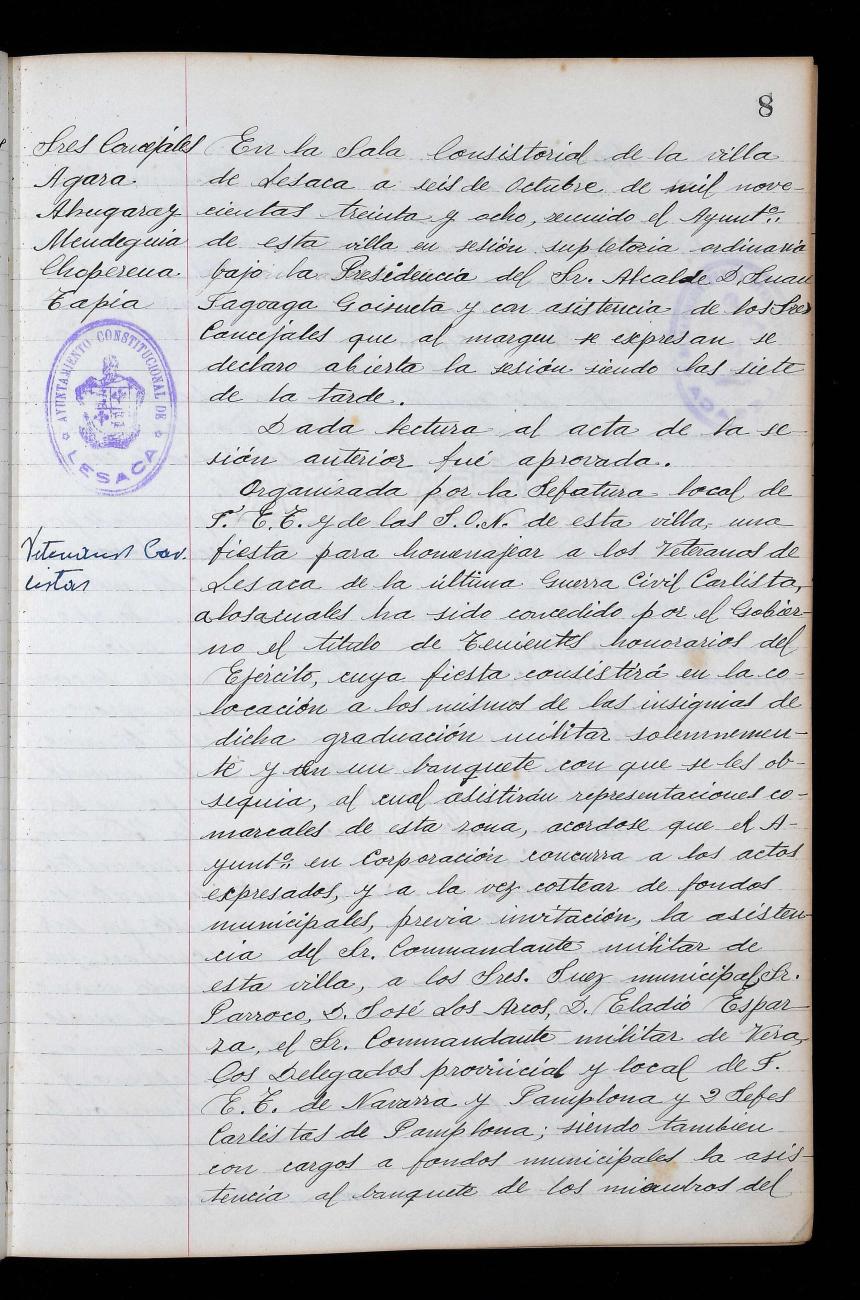 8
Sres Concejales
Agara.
Abugaray
Mendeguia
Choperena.
Tapia
AYUNTAMIENTO CONSTITUCIONAL DE
LESACA
Veteranos Car-
listas
En la Sala Consistorial de la villa
de Lesaca a seis de Octubre de mil nove-
cientas treinta y ocho, reunido el Ayuntº.
de esta villa en sesión supletoria ordinaria
bajo la Presidencia del Sr. Alcalde D. Juan
Fagoaga Goizueta y con asistencia de los Sres
Concejales que al margen se expresan se
declaro abierta la sesión siendo las siete
de la tarde.
Dada lectura al acta de la se-
sión anterior fué aprovada.
Organizada por la Jefatura local de
F. E.T. y de las J.O.N. de esta villa, una
fiesta para homenajear a los Veteranos de
Lesaca de la última Guerra Civil Carlista,
a los cuales ha sido concedido por el Gobier-
no el titulo de Tenientes honorarios del
Ejército, cuya fiesta consistirá en la co-
locación a los mismos de las insignias de
dicha graduación militar solemnemen-
te y en un banquete con que se les ob-
sequia, al cual asistirán representaciones co-
marcales de esta zona, acordose que el A-
yuntº. en Corporación concurra a los actos
expresados, y a la vez costear de fondos
municipales, previa invitación, la asisten-
cia del Sr. Commandante militar de
esta villa, a los Sres. Juez municipal, Sr.
Parroco, D. José Los Arcos, D. Eladio Espar-
za, el Sr. Commandante militar de Vera,
Los Delegados provincial y local de F.
E.T. de Navarra y Pamplona y 2 Jefes
Carlistas de Pamplona; siendo tambien
con cargos a fondos municipales la asis-
tencia al banquete de los miembros del